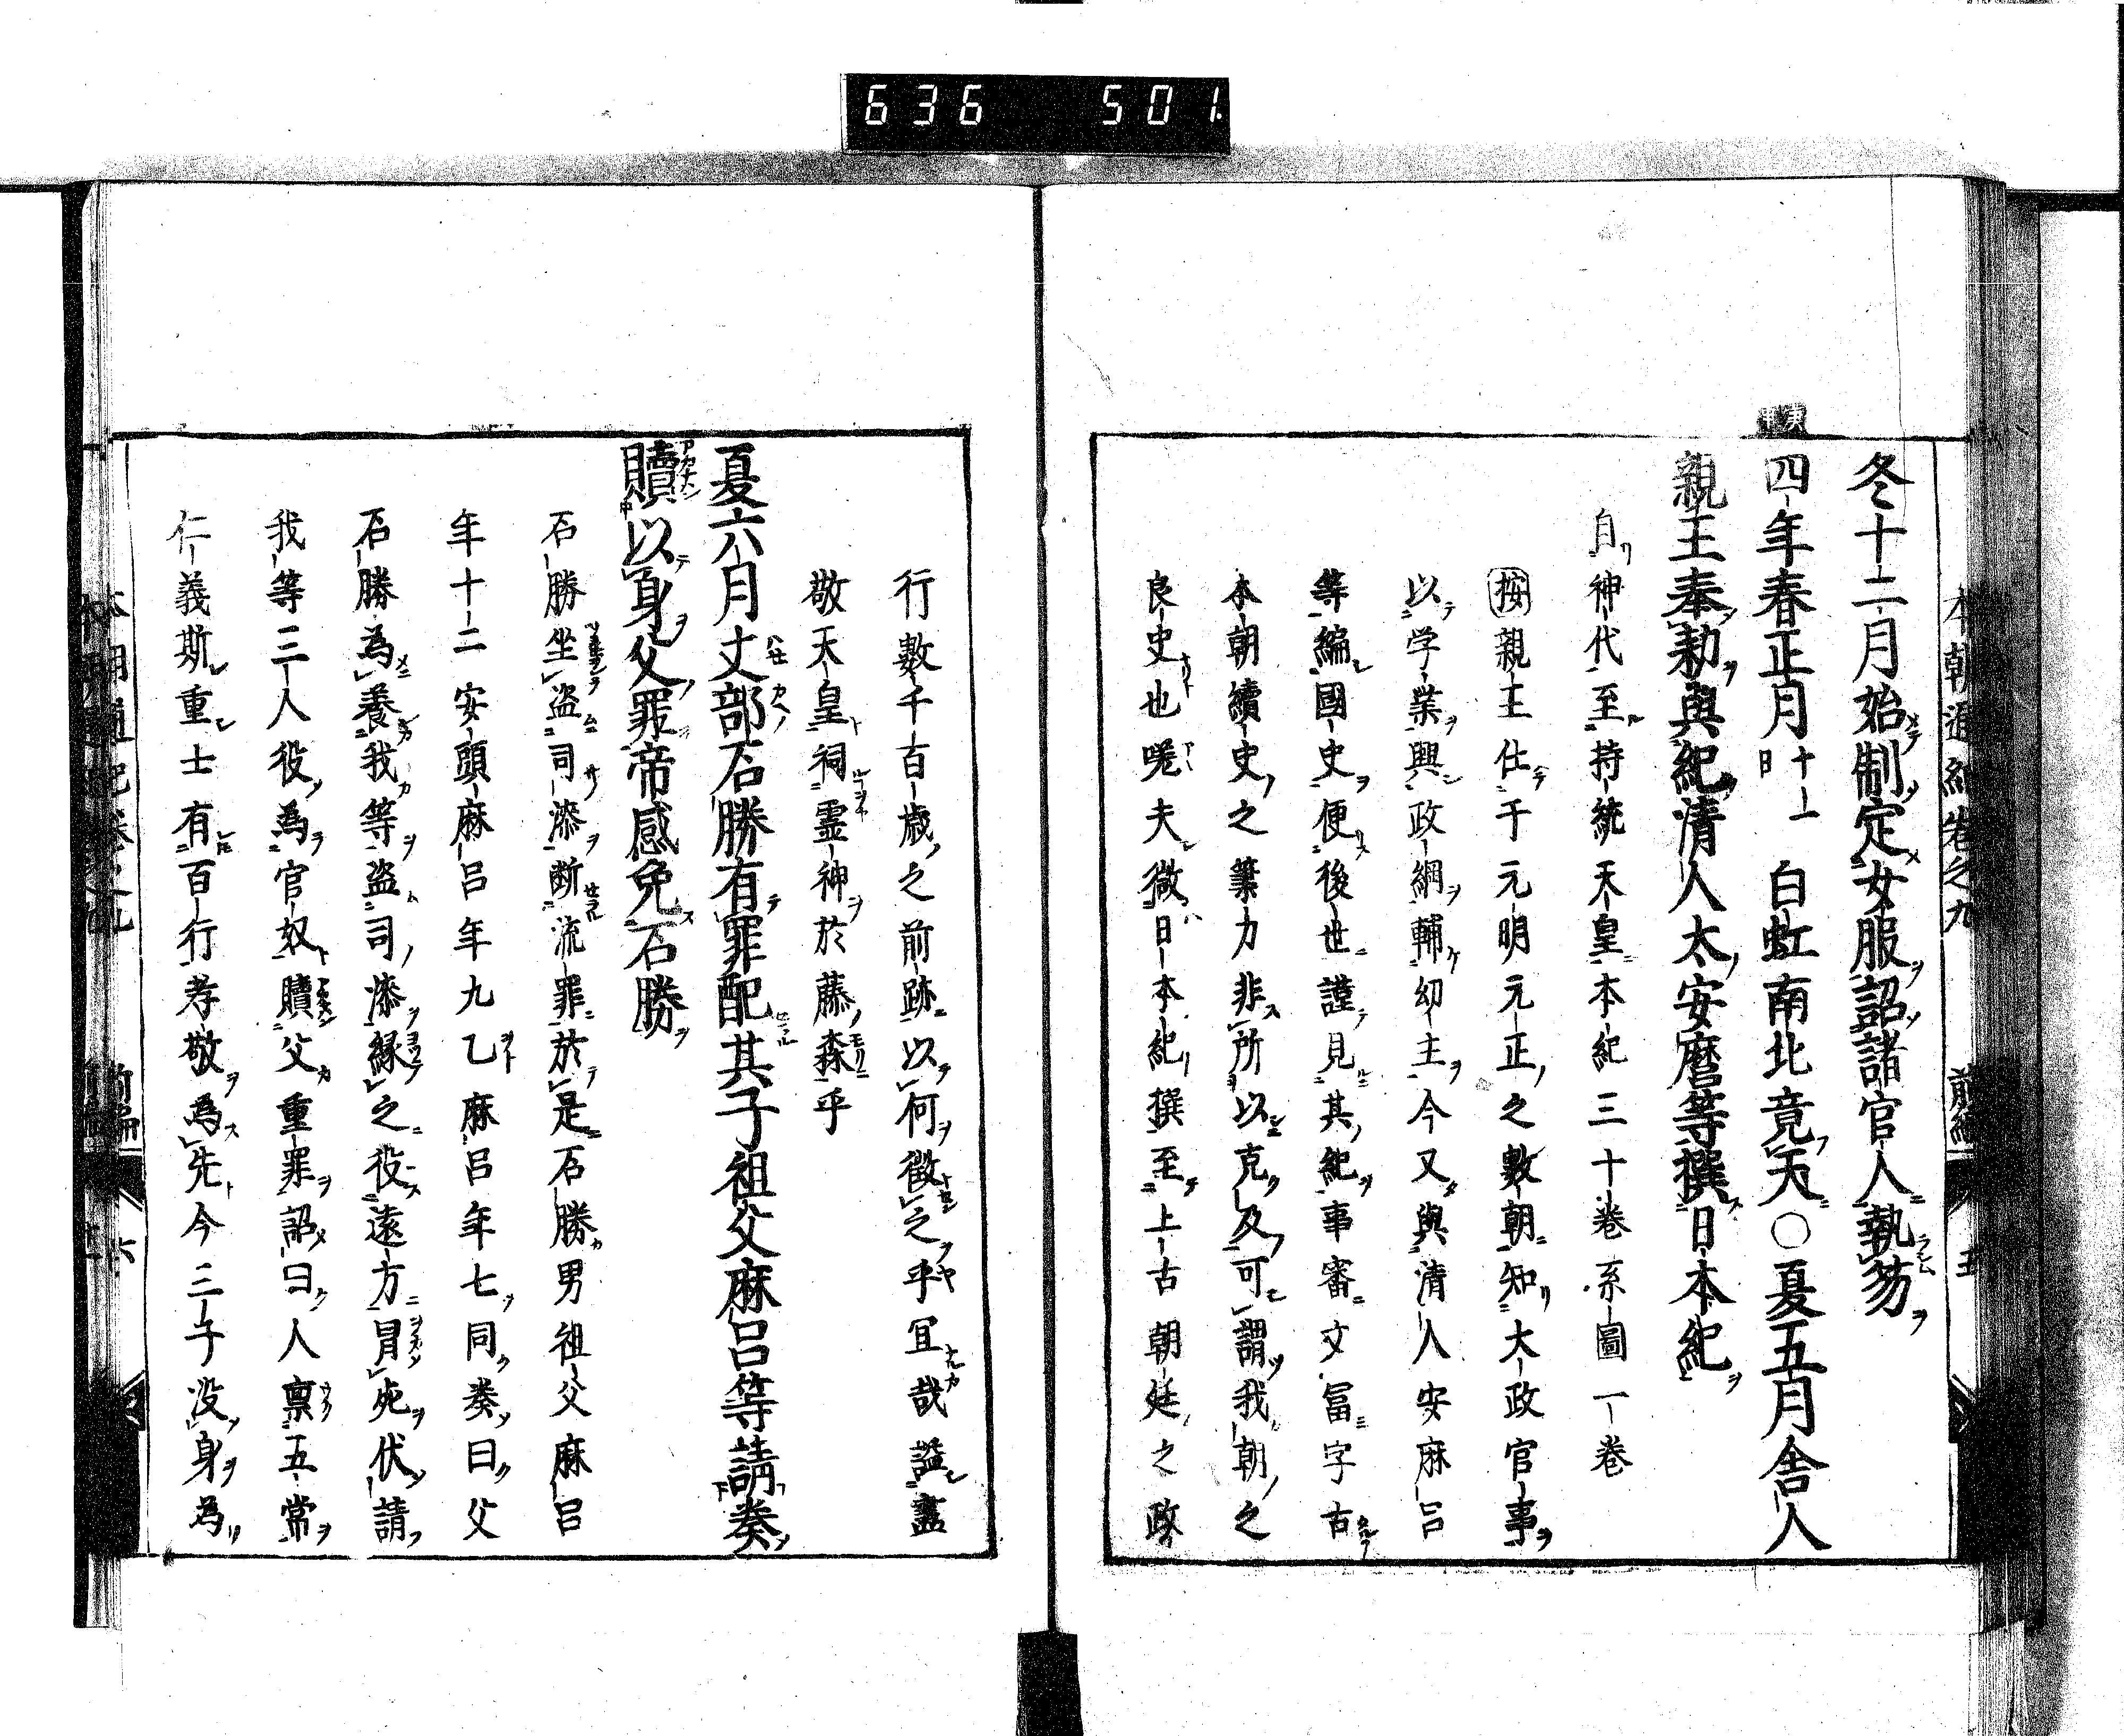 636 501
本朝通紀卷之九 前編 五
冬十二月始制定女服詔諸官人執笏
庚申
四年春正月十一日白虹南北竟天○夏五月舎人
親王奉勅與紀清人太安麿等撰日本紀
自神代至持統天皇本紀三十巻系圖一巻
按親王仕于元明元正之數朝知大政官事
以学業興政綱輔幼主今又與清人安麻呂
等編國史便後世謹見其紀事審文冨字古
本朝續史之筆力非所以克及可謂我朝之
良史也嗟夫微日本紀撰至上古朝廷之政
行數千百歳之前跡以何徴之乎冝哉謚盡
敬天皇祠霊神於藤森乎
夏六月丈部石勝有罪配其子祖父麻呂等請奏
贖以身父罪帝感免石勝
石勝坐盗司漆断流罪於是石勝男祖父麻呂
年十二安頭麻呂年九乙麻呂年七同奏曰父
石勝為養我等盗司漆縁之役遠方冒死伏請
我等三人役為官奴贖父重罪詔曰人禀五常
仁義斯重士有百行孝敬為先今三子没身為
本朝通紀卷之九 前編 六